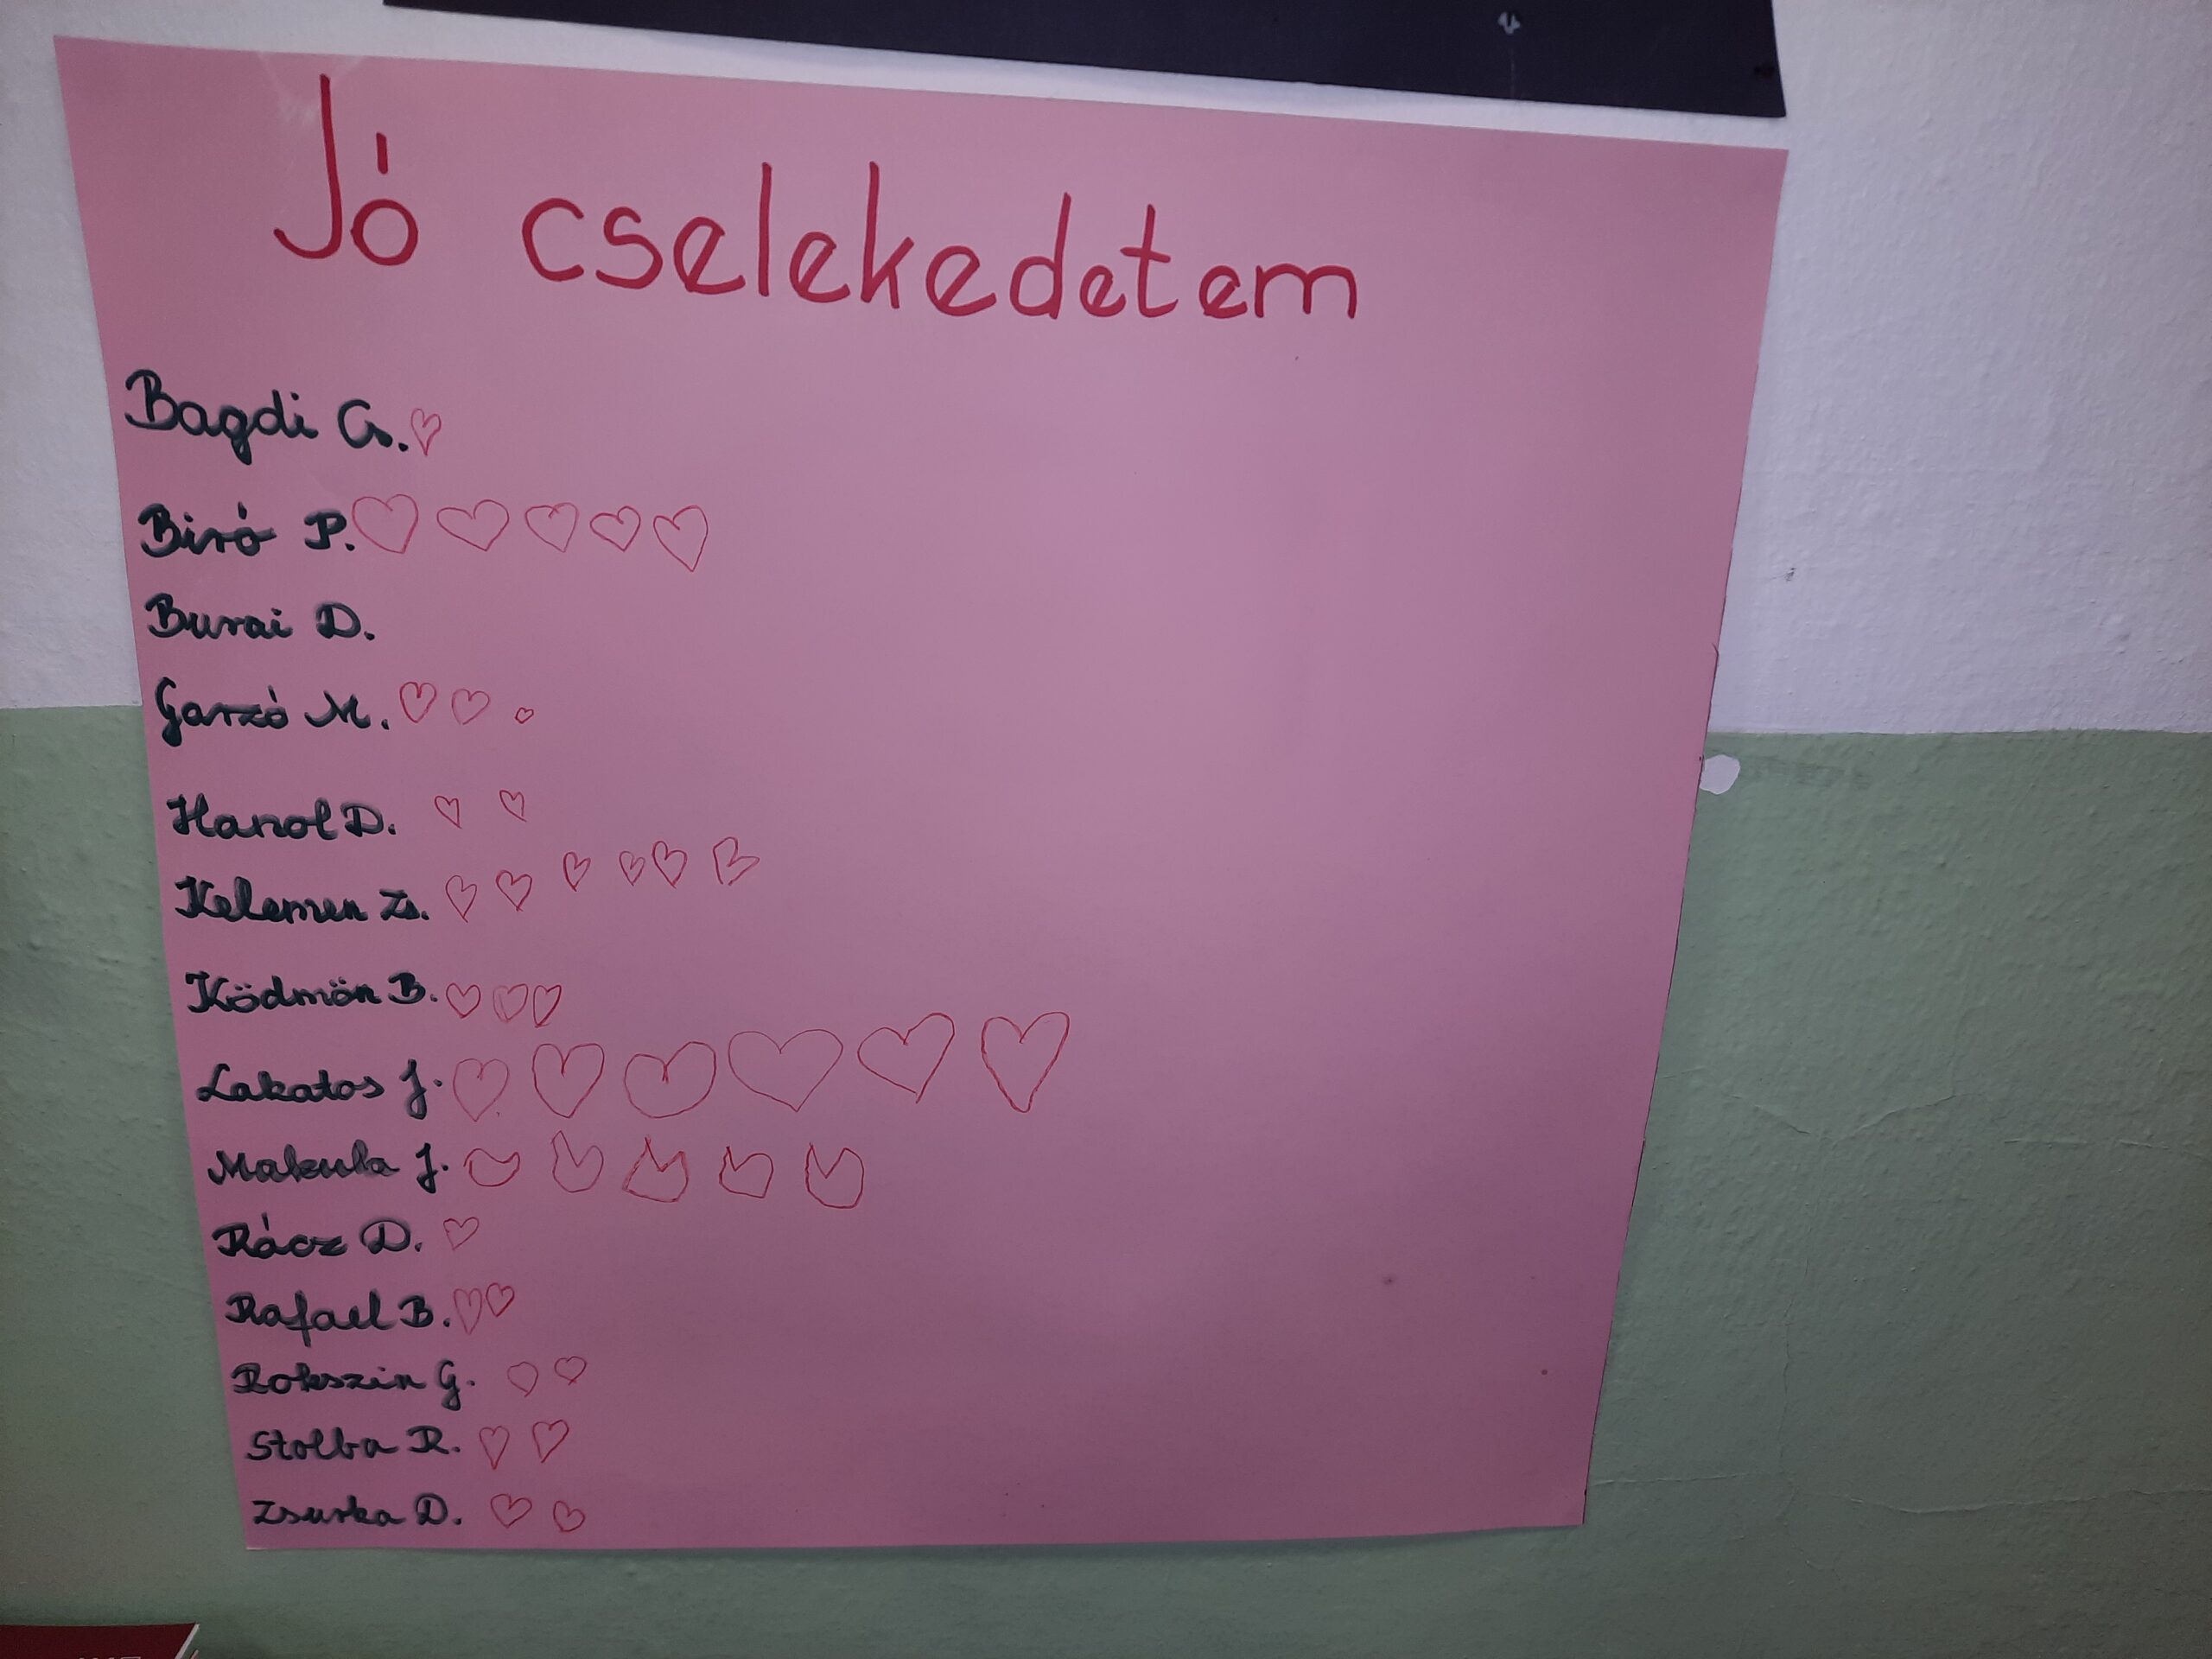 Jó cselekedetem
Bagdi G.
Biró P.
Burai D.
Garzó M.
Hanol D.
Kelemen Zs.
Ködmön B.
Lakatos J.
Makula J.
Rácz D.
Rafael B.
Rokszin G.
Stolba R.
Zsurka D.